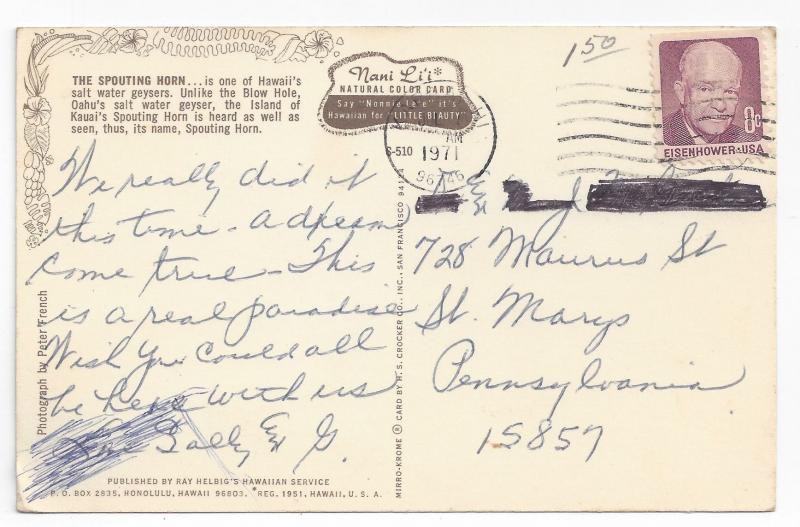 THE SPOUTING HORN... is one of Hawaii's
salt water geysers. Unlike the Blow Hole,
Oahu's salt water geyser, the Island of
Kauai's Spouting Horn is heard as well as
seen, thus, its name, Spouting Horn.
Nani Li'i*
NATURAL COLOR CARD
Say "Nonnie Le'e" it's
Hawaiian for "LITTLE BEAUTY"
S-510
AM
1971
96746
1.50
8c
EISENHOWER·USA
We really did it
this time - a dream
come true - This
is a real paradise
Wish you could all
be here with us
Sally & G.
& J
728 Maurus St
St. Marys
Pennsylvania
15857
Photograph by Peter French
MIRRO-KROME ® CARD BY H. S. CROCKER CO., INC., SAN FRANCISCO 94124
PUBLISHED BY RAY HELBIG'S HAWAIIAN SERVICE
P.O. BOX 2835, HONOLULU, HAWAII 96803. *REG. 1951, HAWAII, U.S.A.